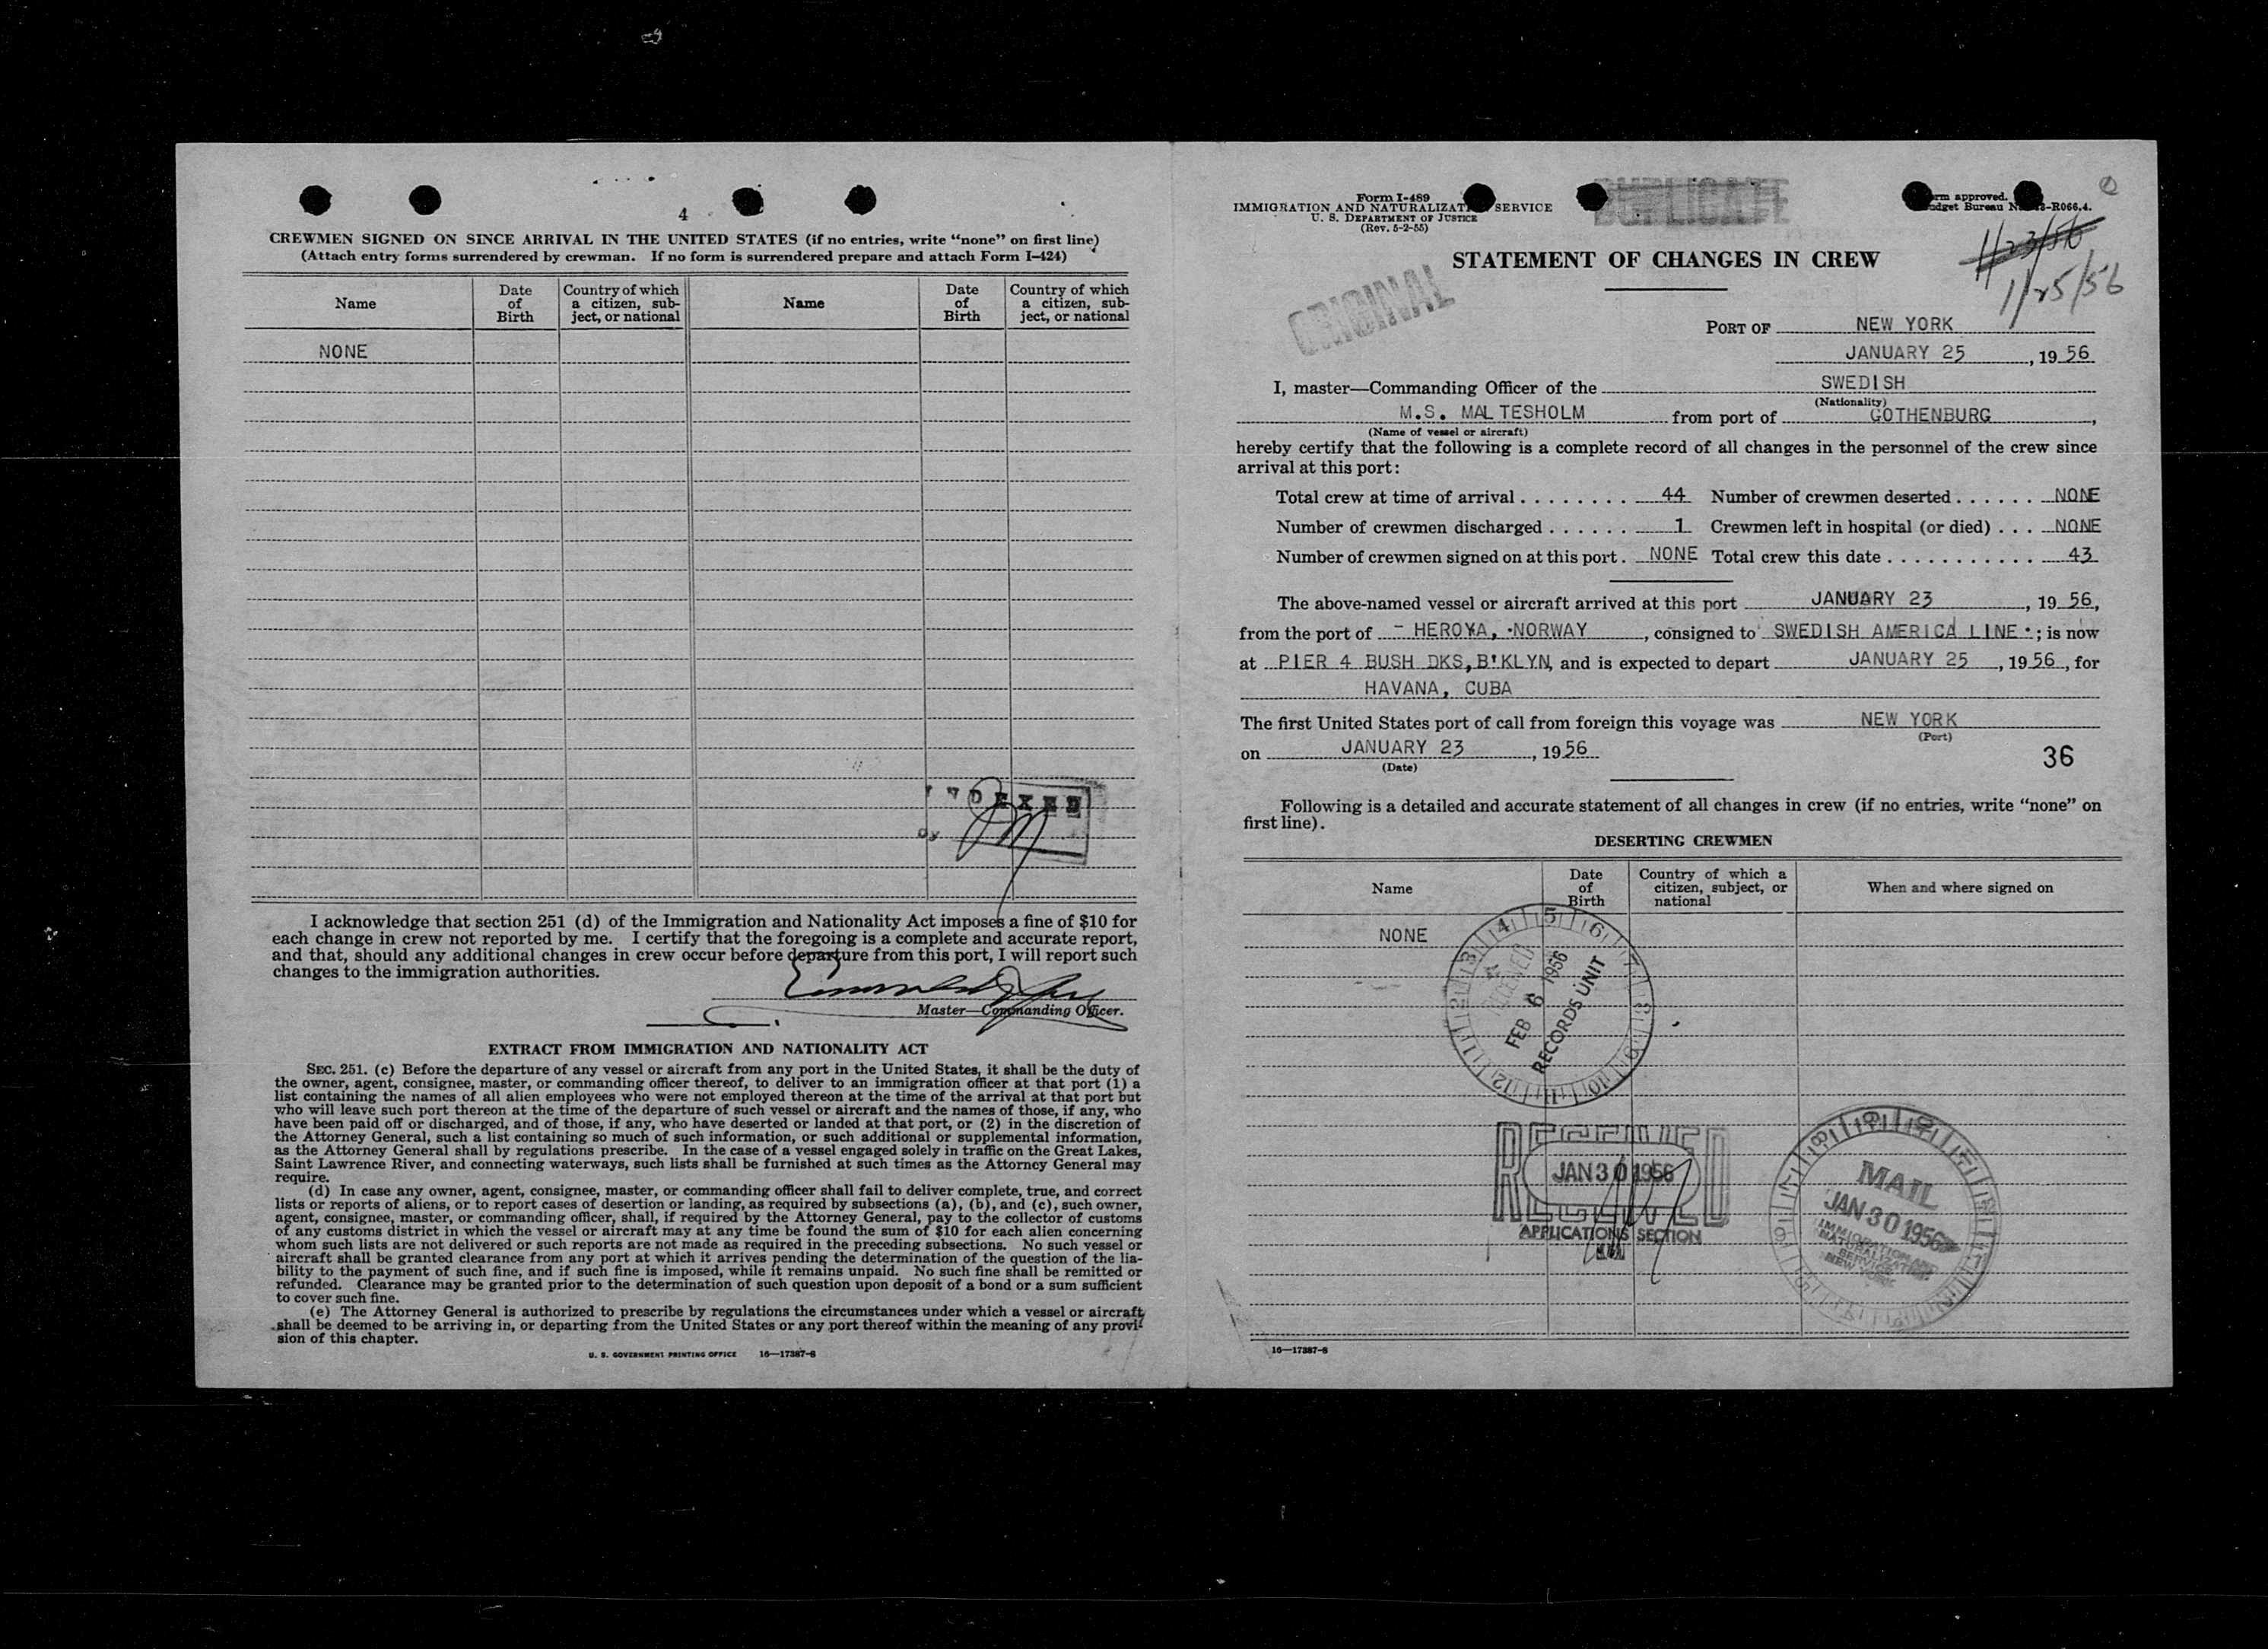 4
CREWMEN SIGNED ON SINCE ARRIVAL IN THE UNITED STATES (if no entries, write “none” on first line)
(Attach entry forms surrendered by crewman. If no form is surrendered prepare and attach Form I-424)
Name
Date of Birth
Country of which a citizen, sub-
ject, or national
Name
Date of Birth
Country of which a citizen, sub-
ject, or national
NONE
INDEXED
BY
I acknowledge that section 251 (d) of the Immigration and Nationality Act imposes a fine of $10 for
each change in crew not reported by me. I certify that the foregoing is a complete and accurate report,
and that, should any additional changes in crew occur before departure from this port, I will report such
changes to the immigration authorities.
Master—Commanding Officer.
EXTRACT FROM IMMIGRATION AND NATIONALITY ACT
SEC. 251. (c) Before the departure of any vessel or aircraft from any port in the United States, it shall be the duty of
the owner, agent, consignee, master, or commanding officer thereof, to deliver to an immigration officer at that port (1) a
list containing the names of all alien employees who were not employed thereon at the time of the arrival at that port but
who will leave such port thereon at the time of the departure of such vessel or aircraft and the names of those, if any, who
have been paid off or discharged, and of those, if any, who have deserted or landed at that port, or (2) in the discretion of
the Attorney General, such a list containing so much of such information, or such additional or supplemental information,
as the Attorney General shall by regulations prescribe. In the case of a vessel engaged solely in traffic on the Great Lakes,
Saint Lawrence River, and connecting waterways, such lists shall be furnished at such times as the Attorney General may
require.
(d) In case any owner, agent, consignee, master, or commanding officer shall fail to deliver complete, true, and correct
lists or reports of aliens, or to report cases of desertion or landing, as required by subsections (a), (b), and (c), such owner,
agent, consignee, master, or commanding officer, shall, if required by the Attorney General, pay to the collector of customs
of any customs district in which the vessel or aircraft may at any time be found the sum of $10 for each alien concerning
whom such lists are not delivered or such reports are not made as required in the preceding subsections. No such vessel or
aircraft shall be granted clearance from any port at which it arrives pending the determination of the question of the lia-
bility to the payment of such fine, and if such fine is imposed, while it remains unpaid. No such fine shall be remitted or
refunded. Clearance may be granted prior to the determination of such question upon deposit of a bond or a sum sufficient
to cover such fine.
(e) The Attorney General is authorized to prescribe by regulations the circumstances under which a vessel or aircraft
shall be deemed to be arriving in, or departing from the United States or any port thereof within the meaning of any provi-
sion of this chapter.
U. S. GOVERNMENT PRINTING OFFICE 16—17387-8
Form I-489
IMMIGRATION AND NATURALIZATION SERVICE
U. S. DEPARTMENT OF JUSTICE
(Rev. 5-2-55)
DUPLICATE
Form approved.
Budget Bureau No. 43-R066.4.
1/23/56
1/25/56
STATEMENT OF CHANGES IN CREW
ORIGINAL
PORT OF NEW YORK
JANUARY 25, 1956
I, master—Commanding Officer of the SWEDISH
(Nationality)
M.S. MALTESHOLM from port of GOTHENBURG,
(Name of vessel or aircraft)
hereby certify that the following is a complete record of all changes in the personnel of the crew since
arrival at this port:
Total crew at time of arrival . . . . . . . . 44 Number of crewmen deserted . . . . . . NONE
Number of crewmen discharged . . . . . . 1 Crewmen left in hospital (or died) . . . NONE
Number of crewmen signed on at this port . NONE Total crew this date . . . . . . . . . . . 43
The above-named vessel or aircraft arrived at this port JANUARY 23, 1956,
from the port of - HEROYA, NORWAY, consigned to SWEDISH AMERICA LINE ; is now
at PIER 4 BUSH DKS, B'KLYN, and is expected to depart JANUARY 25, 1956, for
HAVANA, CUBA
The first United States port of call from foreign this voyage was NEW YORK
(Port)
on JANUARY 23, 1956
(Date)
36
Following is a detailed and accurate statement of all changes in crew (if no entries, write “none” on
first line).
DESERTING CREWMEN
Name
Date of Birth
Country of which a citizen, subject, or national
When and where signed on
NONE
RECEIVED
FEB 6 1956
RECORDS UNIT
RECEIVED
JAN 30 1956
APPLICATIONS SECTION
MAIL
JAN 30 1956
IMMIGRATION AND
NATURALIZATION
SERVICE
NEW YORK
16—17387-8